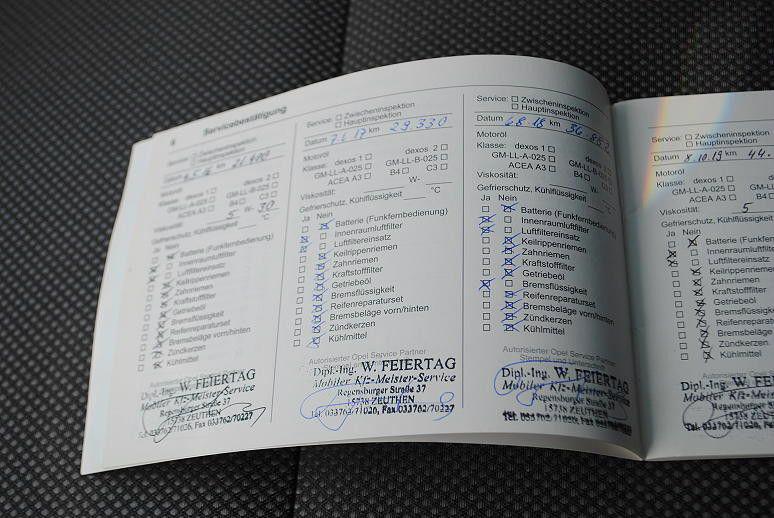 Servicebestätigung
Service: Zwischeninspektion
Hauptinspektion
Datum km 21.400
Motoröl
Klasse: dexos 1 dexos 2
GM-LL-A-025 GM-LL-B-025
ACEA A3 B4 C3
Viskosität: 5 W- 30
Gefrierschutz, Kühlflüssigkeit °C
Ja Nein
Batterie (Funkfernbedienung)
Innenraumluftfilter
Luftfiltereinsatz
Keilrippenriemen
Zahnriemen
Kraftstofffilter
Getriebeöl
Bremsflüssigkeit
Reifenreparaturset
Bremsbeläge vorn/hinten
Zündkerzen
Kühlmittel
Autorisierter Opel Service Partner
Dipl.-Ing. W. FEIERTAG
Mobiler Kfz-Meister-Service
Regensburger Straße 37
15738 ZEUTHEN
Tel. 033762/71026, Fax 033762/70227
Service: Zwischeninspektion
Hauptinspektion
Datum 7.6.17 km 29.330
Motoröl
Klasse: dexos 1 dexos 2
GM-LL-A-025 GM-LL-B-025
ACEA A3 B4 C3
Viskosität: W-
Gefrierschutz, Kühlflüssigkeit °C
Ja Nein
Batterie (Funkfernbedienung)
Innenraumluftfilter
Luftfiltereinsatz
Keilrippenriemen
Zahnriemen
Kraftstofffilter
Getriebeöl
Bremsflüssigkeit
Reifenreparaturset
Bremsbeläge vorn/hinten
Zündkerzen
Kühlmittel
Autorisierter Opel Service Partner
Dipl.-Ing. W. FEIERTAG
Mobiler Kfz-Meister-Service
Regensburger Straße 37
15738 ZEUTHEN
Tel. 033762/71026, Fax 033762/70227
Service: Zwischeninspektion
Hauptinspektion
Datum 6.8.18 km
Motoröl
Klasse: dexos 1 dexos 2
GM-LL-A-025 GM-LL-B-025
ACEA A3 B4 C3
Viskosität: W-
Gefrierschutz, Kühlflüssigkeit °C
Ja Nein
Batterie (Funkfernbedienung)
Innenraumluftfilter
Luftfiltereinsatz
Keilrippenriemen
Zahnriemen
Kraftstofffilter
Getriebeöl
Bremsflüssigkeit
Reifenreparaturset
Bremsbeläge vorn/hinten
Zündkerzen
Kühlmittel
Autorisierter Opel Service Partner
Stempel und Unterschrift
Dipl.-Ing. W. FEIERTAG
Mobiler Kfz-Meister-Service
Regensburger Straße 37
15738 ZEUTHEN
Tel. 033762/71026, Fax 033762/70227
Service: Zwischeninspektion
Hauptinspektion
Datum 8.10.19 km 44.
Motoröl
Klasse: dexos 1
GM-LL-A-025
ACEA A3
Viskosität: 5
Gefrierschutz, Kühlflüssigk
Ja Nein
Batterie (Funkfern
Innenraumluftfilte
Luftfiltereinsatz
Keilrippenrieme
Zahnriemen
Kraftstofffilter
Getriebeöl
Bremsflüssigk
Reifenrepara
Bremsbeläge
Zündkerzen
Kühlmittel
Autorisierter Opel Se
Dipl.-Ing. W. F
Mobiler Kfz-Meis
Regensburger
15738 ZEU
Tel. 033762/71026,